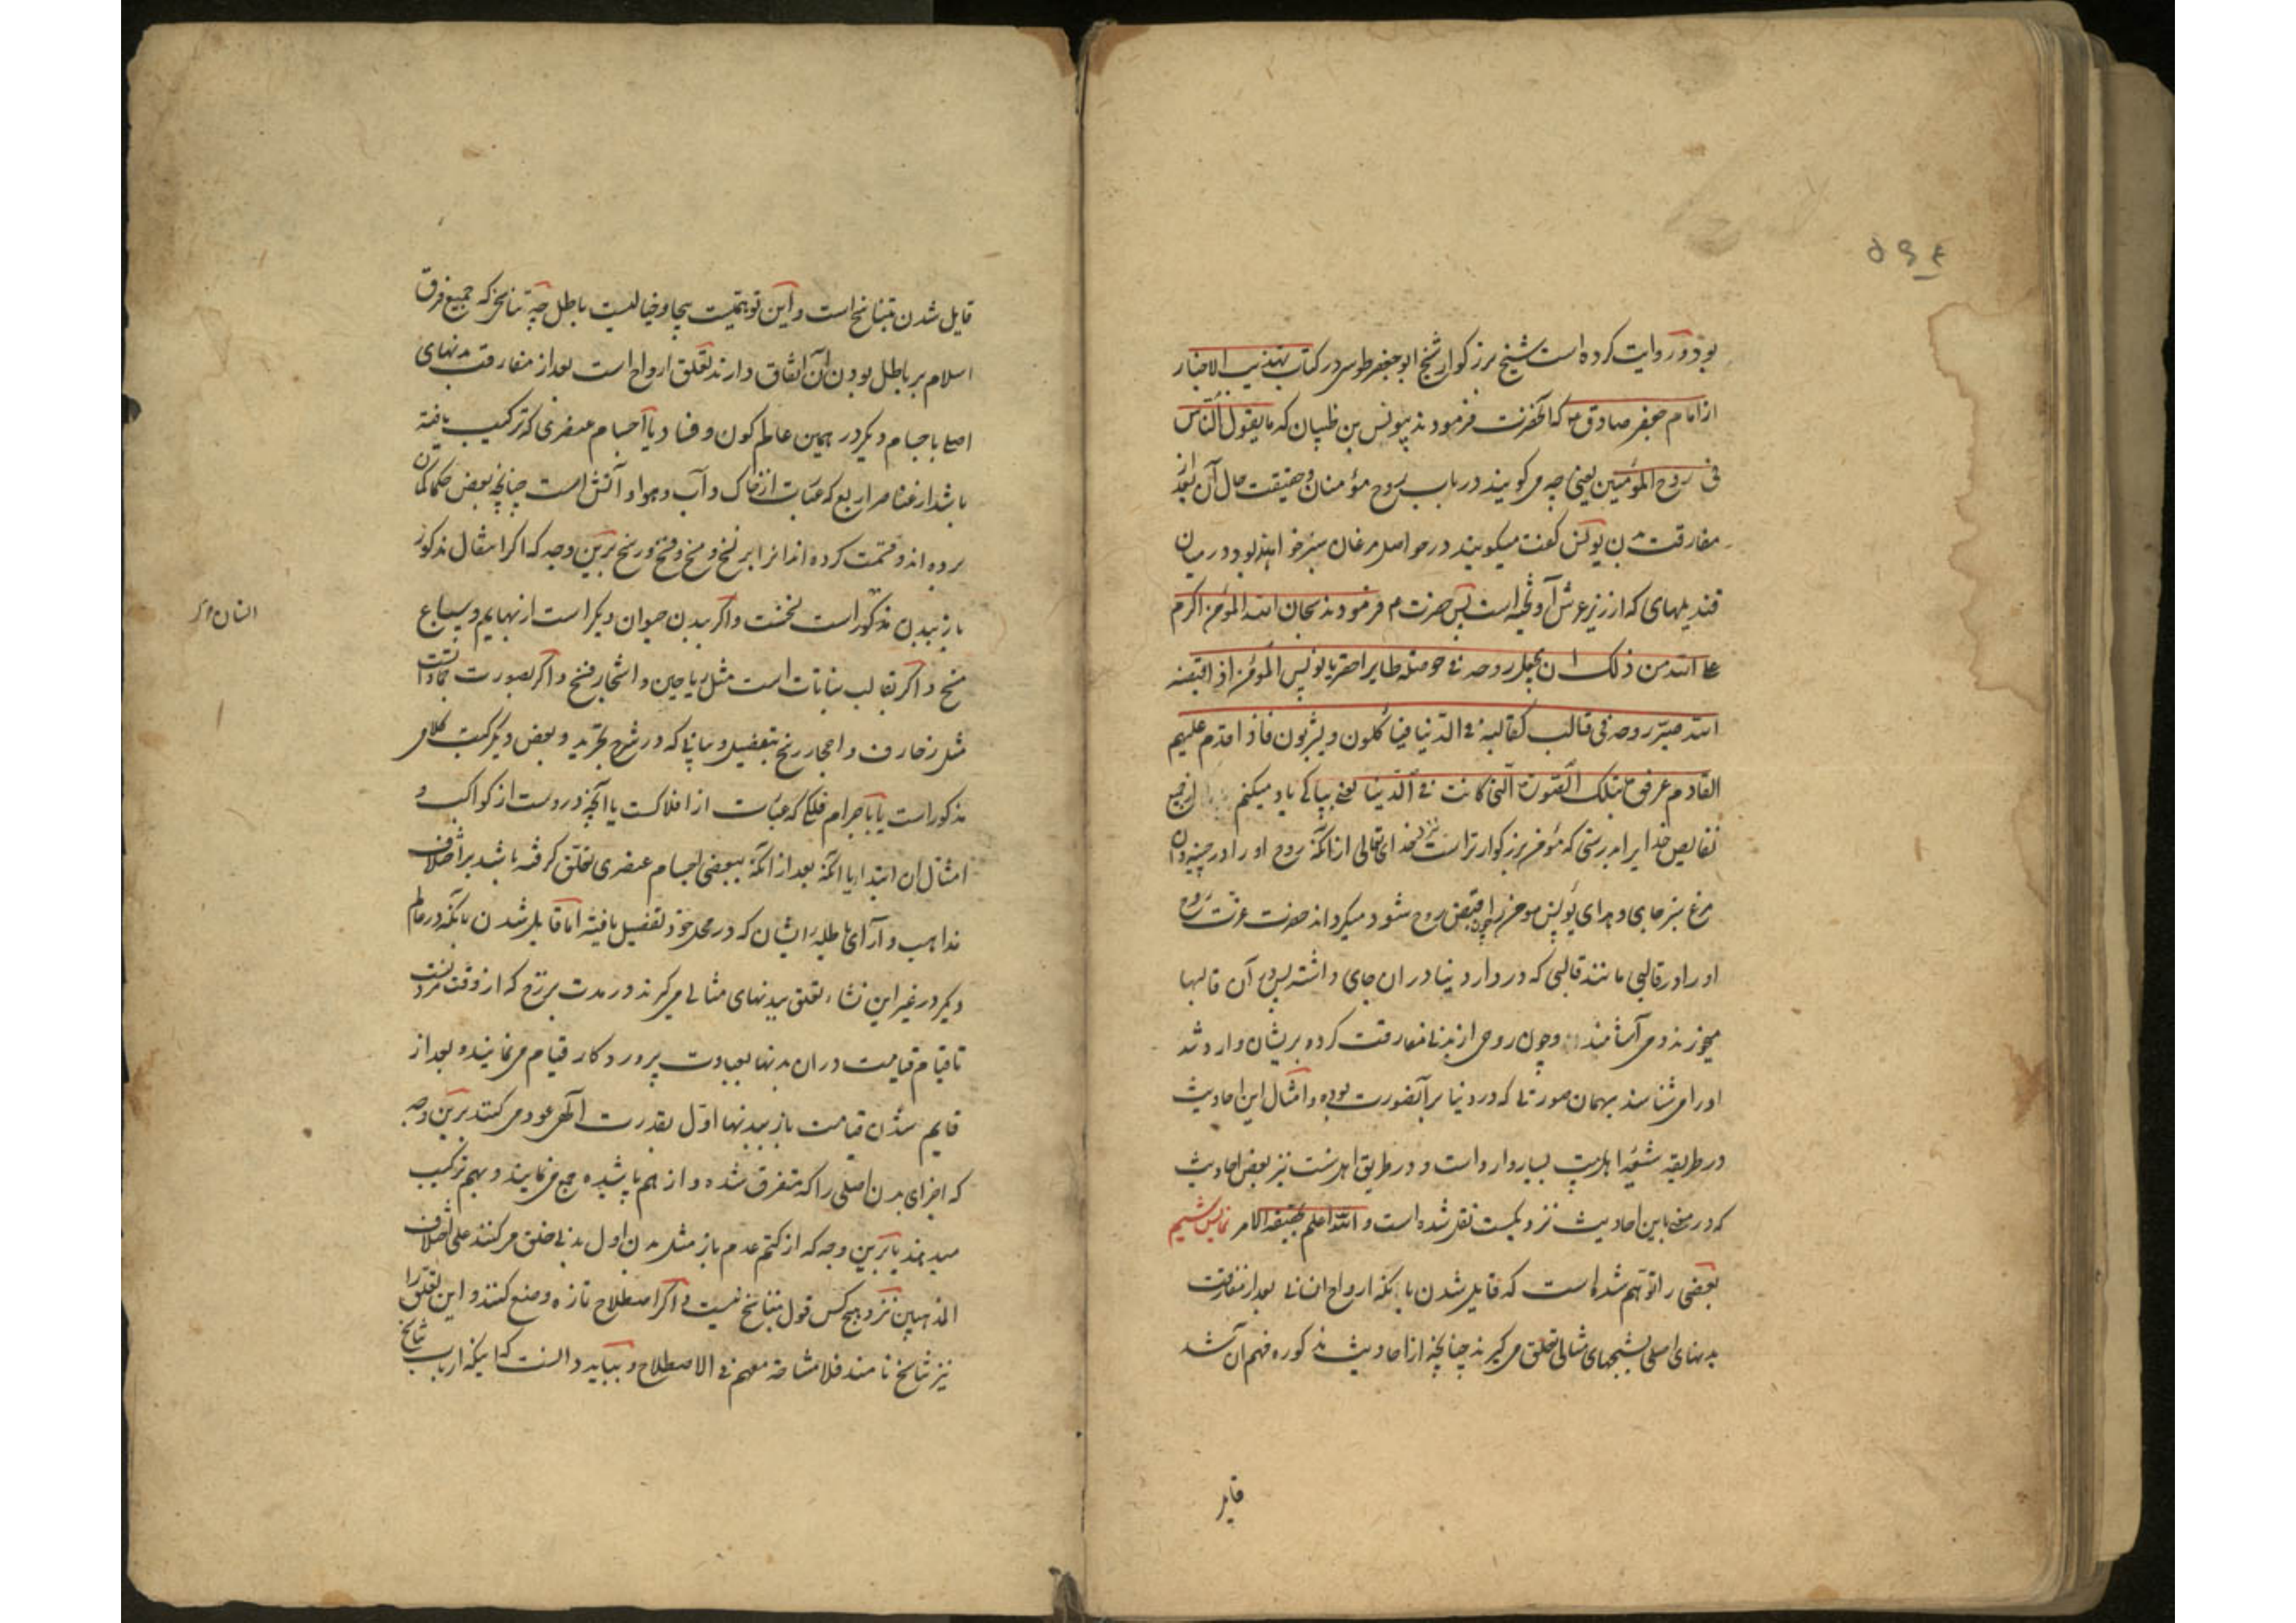 ۵۹۴
بود و روایت کرده است شیخ بزرکوار شیخ ابو جعفر طوسی در کتاب تهذیب الاخبار
از امام جعفر صادق ع که آنحضرت فرمودند بیونس بن ظبیان که ما یقول الناس
فی روح المؤمنین یعنی چه میکویند در باب روح مؤمنان و حقیقت حال آن بعد از
مفارقت بدن یونس کفت میکویند در حواصل مرغان سبز خواهند بود در میان
قندیلهای که از زیر عرش آویخته است پس حضرت ع فرمودند سبحان الله المؤمن اکرم
علی الله من ذلک ان یجعل روحه فی حوصله طایر اخضر یا یونس المؤمن اذا قبضه
الله صیّر روحه فی قالب کقالبه فی الدنیا فیاکلون و یشربون فاذا قدم علیهم
القادم عرفوه بتلک الصورة التی کانت فی الدنیا یعنی بپاکی یاد میکنم از جمیع
نقایص خدایرا بدرستی که مؤمن بزرکوارتر است نزد خدای تعالی از آنکه روح او را در چینه دان
مرغ سبز جای دهد ای یونس مومن را چون قبض روح شود میکرداند حضرت عزت روح
او را در قالبی مانند قالبی که در دار دنیا در ان جای داشته پس در آن قالبها
میخورند و می آشامند و چون روحی از بدن مفارقت کرده بریشان وارد شد
او را می شناسند بهمان صورتی که در دنیا بر آنصورت بوده و امثال این احادیث
در طریقه شیعه اهل بیت بسیار وارد است و در طریق اهل سنت نیز بعض احادیث
که در معنی باین احادیث نزدیکست نقل شده است و الله اعلم بحقیقة الامر نمایش ششم
بعضی را توهم شده است که قایل شدن بانکه ارواح انسانی بعد از مفارقت
بدنهای اصلی بشبحهای مثالی تعلق میکیرند چنانچه از احادیث مذکوره فهم آن شد
قایل
قایل شدن بتناسخ است و این توهمیست بیجا و خیالیست باطل چه تناسخی که جمیع فرق
اسلام بر باطل بودن آن اتفاق دارند تعلق ارواح است بعد از مفارقت بدنهای
اصلی باجسام دیکر در همین عالم کون و فساد یا اجسام عنصری که ترکیب یافته
باشد از عناصر اربع که عبارت از خاک و آب و هوا و آتش است چنانچه بعض حکما کمان
برده اند و قسمت کرده اند انرا بر نسخ و مسخ و فسخ و رسخ برین وجه که اکر انتقال مذکور
باز ببدن مذکور است نسخست و اکر ببدن حیوان دیکر است از بهایم و سباع
انسان دیگر
مسخ و اکر بقالب نباتات است مثل ریاحین و اشجار فسخ و اکر بصورت جمادات است
مثل زخارف و احجار رسخ بتفصیل و بیانی که در شرح تجرید و بعض دیکر کتب کلامی
مذکور است یا باجرام فلکی که عبارت از افلاکست یا آنچه دروست از کواکب و
امثال ان ابتدا یا آنکه بعد از آنکه ببعضی اجسام عنصری تعلق کرفته باشد بر اختلاف
مذاهب و آرای باطله ایشان که در محل خود تفصیل یافته اما قایل شدن بانکه در عالم
دیکر در غیر این نشاء تعلق ببدنهای مثالی میکیرند در مدت برزخ که از وقت مردنست
تا قیام قیامت در ان بدنها بعبادت پروردکار قیام می نمایند و بعد از
قایم شدن قیامت باز ببدنها اول بقدرت الهی عود می کنند برین وجه
که اجزای بدن اصلی را که متفرق شده و از هم پاشیده جمع می نمایند و بهم ترکیب
میدهند یا برین وجه که از کتم عدم باز مثل بدن اول بدنی خلق می کنند علی اختلاف
المذهبین نزد هیچ کس قول بتناسخ نیست و اکر اصطلاح تازه وضع کنند و این تعلق را
نیز تناسخ نامند فلا مشاحة معهم فی الاصطلاح و بباید دانست که اینکه ارباب تناسخ